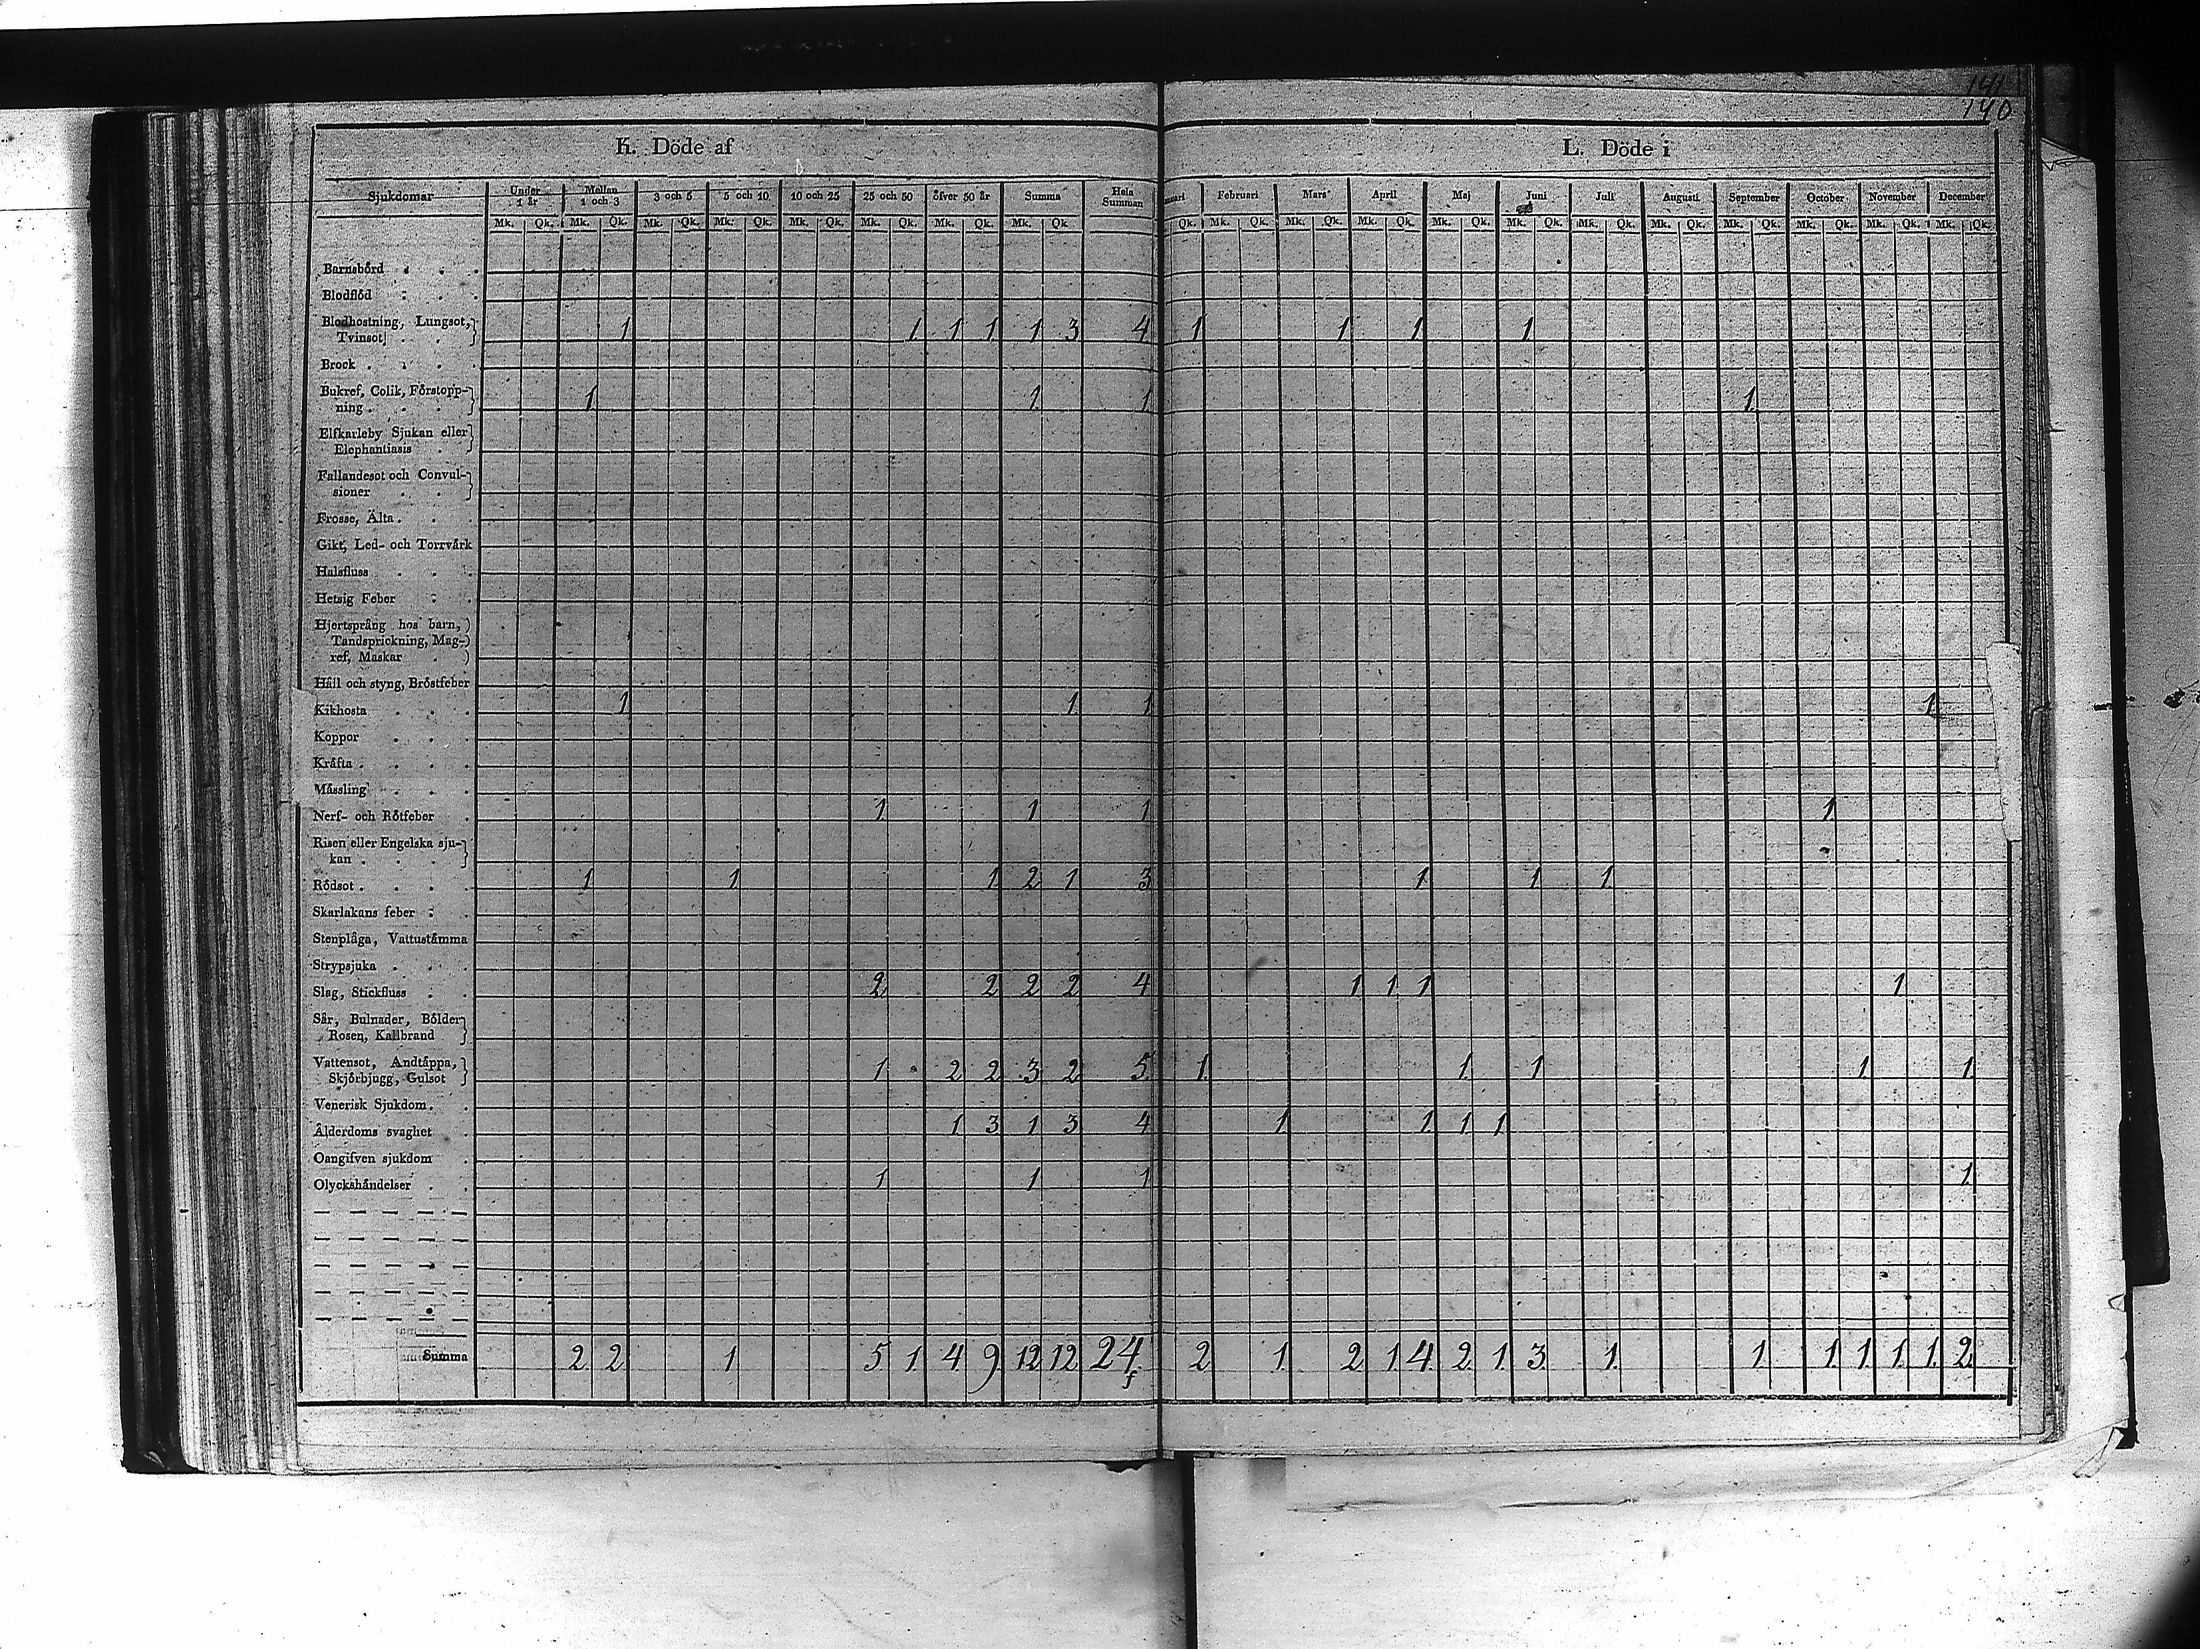 140
K. Döde af L. Döde i
Sjukdomar Under 1 år Mellan 1 och 3 3 och 5 5 och 10 10 och 25 25 och 50 öfver 50 år Summa Hela Summan Februari Mars April Maj Juni Juli Augusti September October November December
Mk. Qk. Mk. Qk. Mk. Qk. Mk. Qk. Mk. Qk. Mk. Qk. Mk. Qk. Mk. Qk Qk. Mk. Qk. Mk. Qk. Mk. Qk. Mk. Qk. Mk. Qk. Mk. Qk. Mk. Qk. Mk. Qk. Mk. Qk. Mk. Qk. Mk. Qk.
Barnsbörd
Blodflöd
Blodhostning, Lungsot,
Tvinsot 1 1 1 1 1 3 4 1 1 1 1
Brock
Bukref, Colik, Förstopp-
ning 1 1 1 1
Elfkarleby Sjukan eller
Elephantiasis
Fallandesot och Convul-
sioner
Frosse, Älta
Gikt, Led- och Torrvärk
Halsfluss
Hetsig Feber
Hjertsprång hos barn,
Tandsprickning, Mag-
ref, Maskar
Håll och styng, Bröstfeber
Kikhosta 1 1 1 1
Koppor
Kräfta
Mässling
Nerf- och Rötfeber 1 1 1 1
Risen eller Engelska sju-
kan
Rödsot 1 1 1 2 1 3 1 1 1
Skarlakans feber
Stenplåga, Vattustämma
Strypsjuka
Slag, Stickfluss 2 2 2 2 4 1 1 1 1
Sår, Bulnader, Bölder
Rosen, Kallbrand
Vattensot, Andtäppa,
Skjörbjugg, Gulsot 1 2 2 3 2 5 1 1 1 1 1
Venerisk Sjukdom
Ålderdoms svaghet 1 3 1 3 4 1 1 1 1
Oangifven sjukdom
Olyckshändelser 1 1 1 1
Summa 2 2 1 5 1 4 9 12 12 24 2 1 2 1 4 2 1 3 1 1 1 1 1 1 2